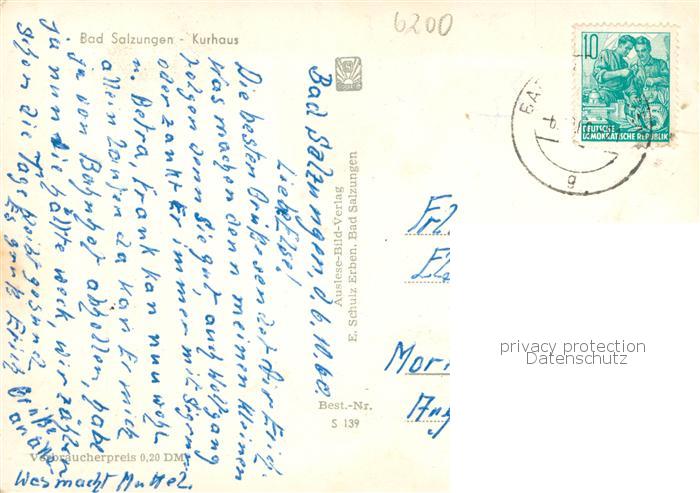 Bad Salzungen - Kurhaus
6200
10
DEUTSCHE
DEMOKRATISCHE REPUBLIK
BA
g
Bad Salzungen, d. 6.10.60.
Liebe Else!
Die besten Grüße sendet dir Erich.
Was machen denn meinen Kleinen
folgen denn Sie gut, auch Wolfgang
oder zankt Er immer mit Sigrun
u. Petra, Frank kan nun wohl
allein laufen da kan Er mich
ja von Bahnhof abhollen, habe
ja nun die hälfte weck, wir zählen
schon die Tage bleibt gesund
Es grüßt Erich
Was macht Mutter.
Auslese-Bild-Verlag
E. Schulz Erben, Bad Salzungen
Best.-Nr.
S 139
Verbraucherpreis 0,20 DM
Fr
El
Mor
privacy protection
Datenschutz